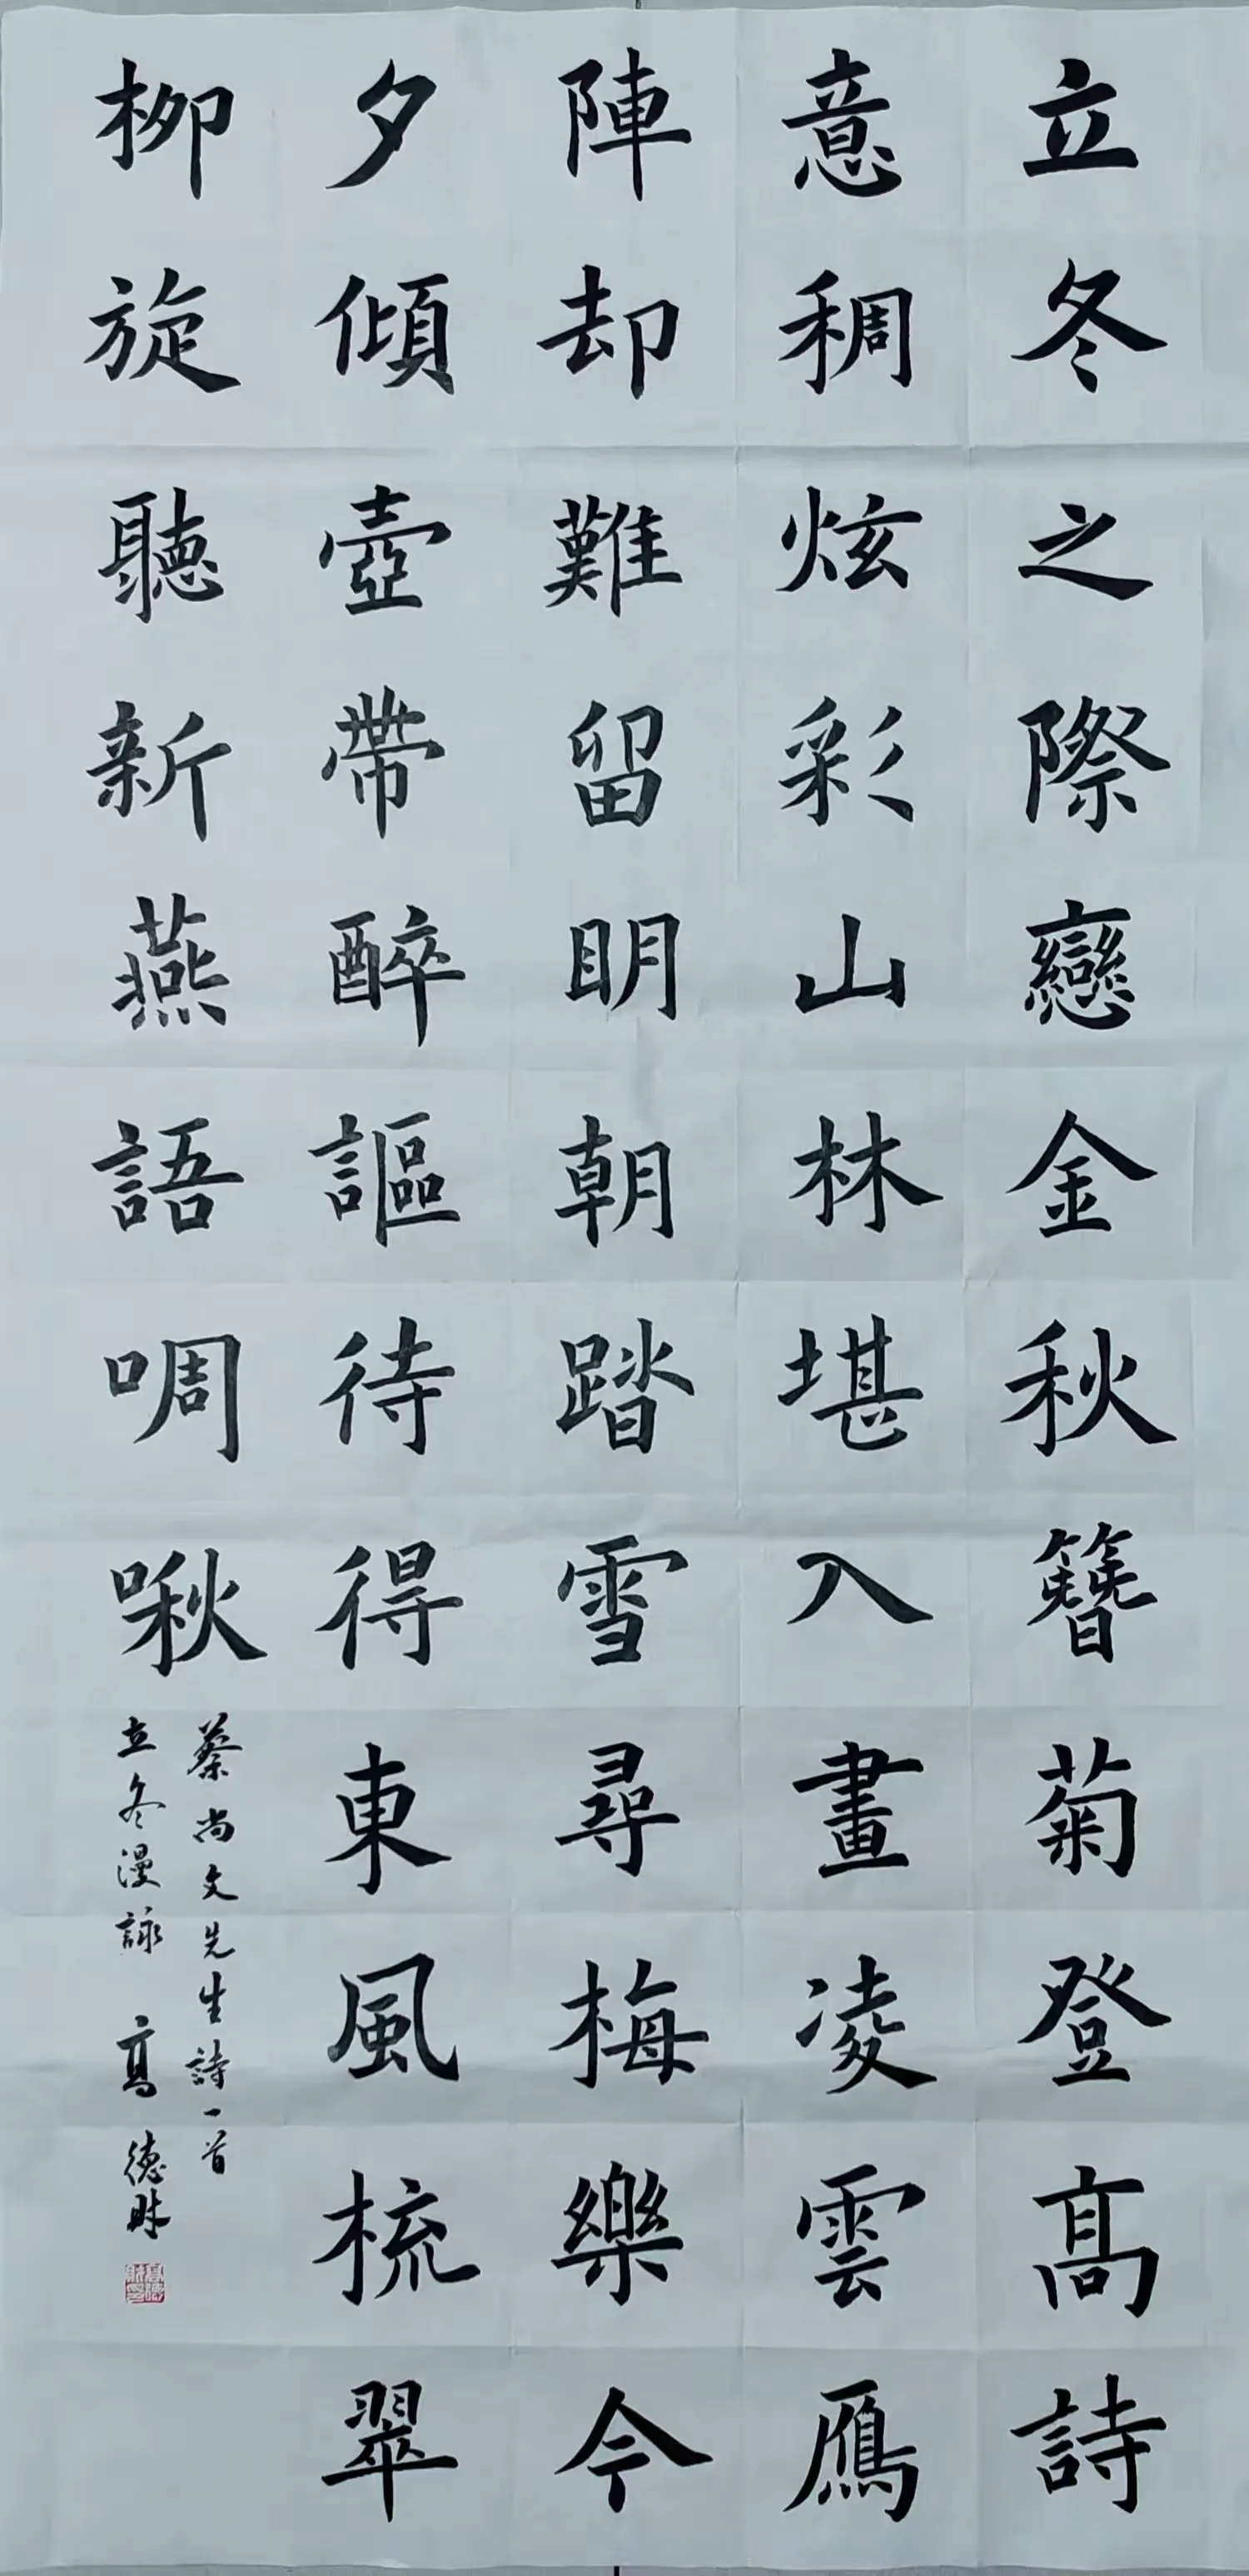 立冬之際戀金秋簪菊登高詩
意稠炫彩山林堪入畫凌雲鴈
陣却難留明朝踏雪尋梅樂今
夕傾壺帶醉謳待得東風梳翠
柳旋聽新燕語啁啾
蔡尚文先生詩一首
立冬漫詠 高德